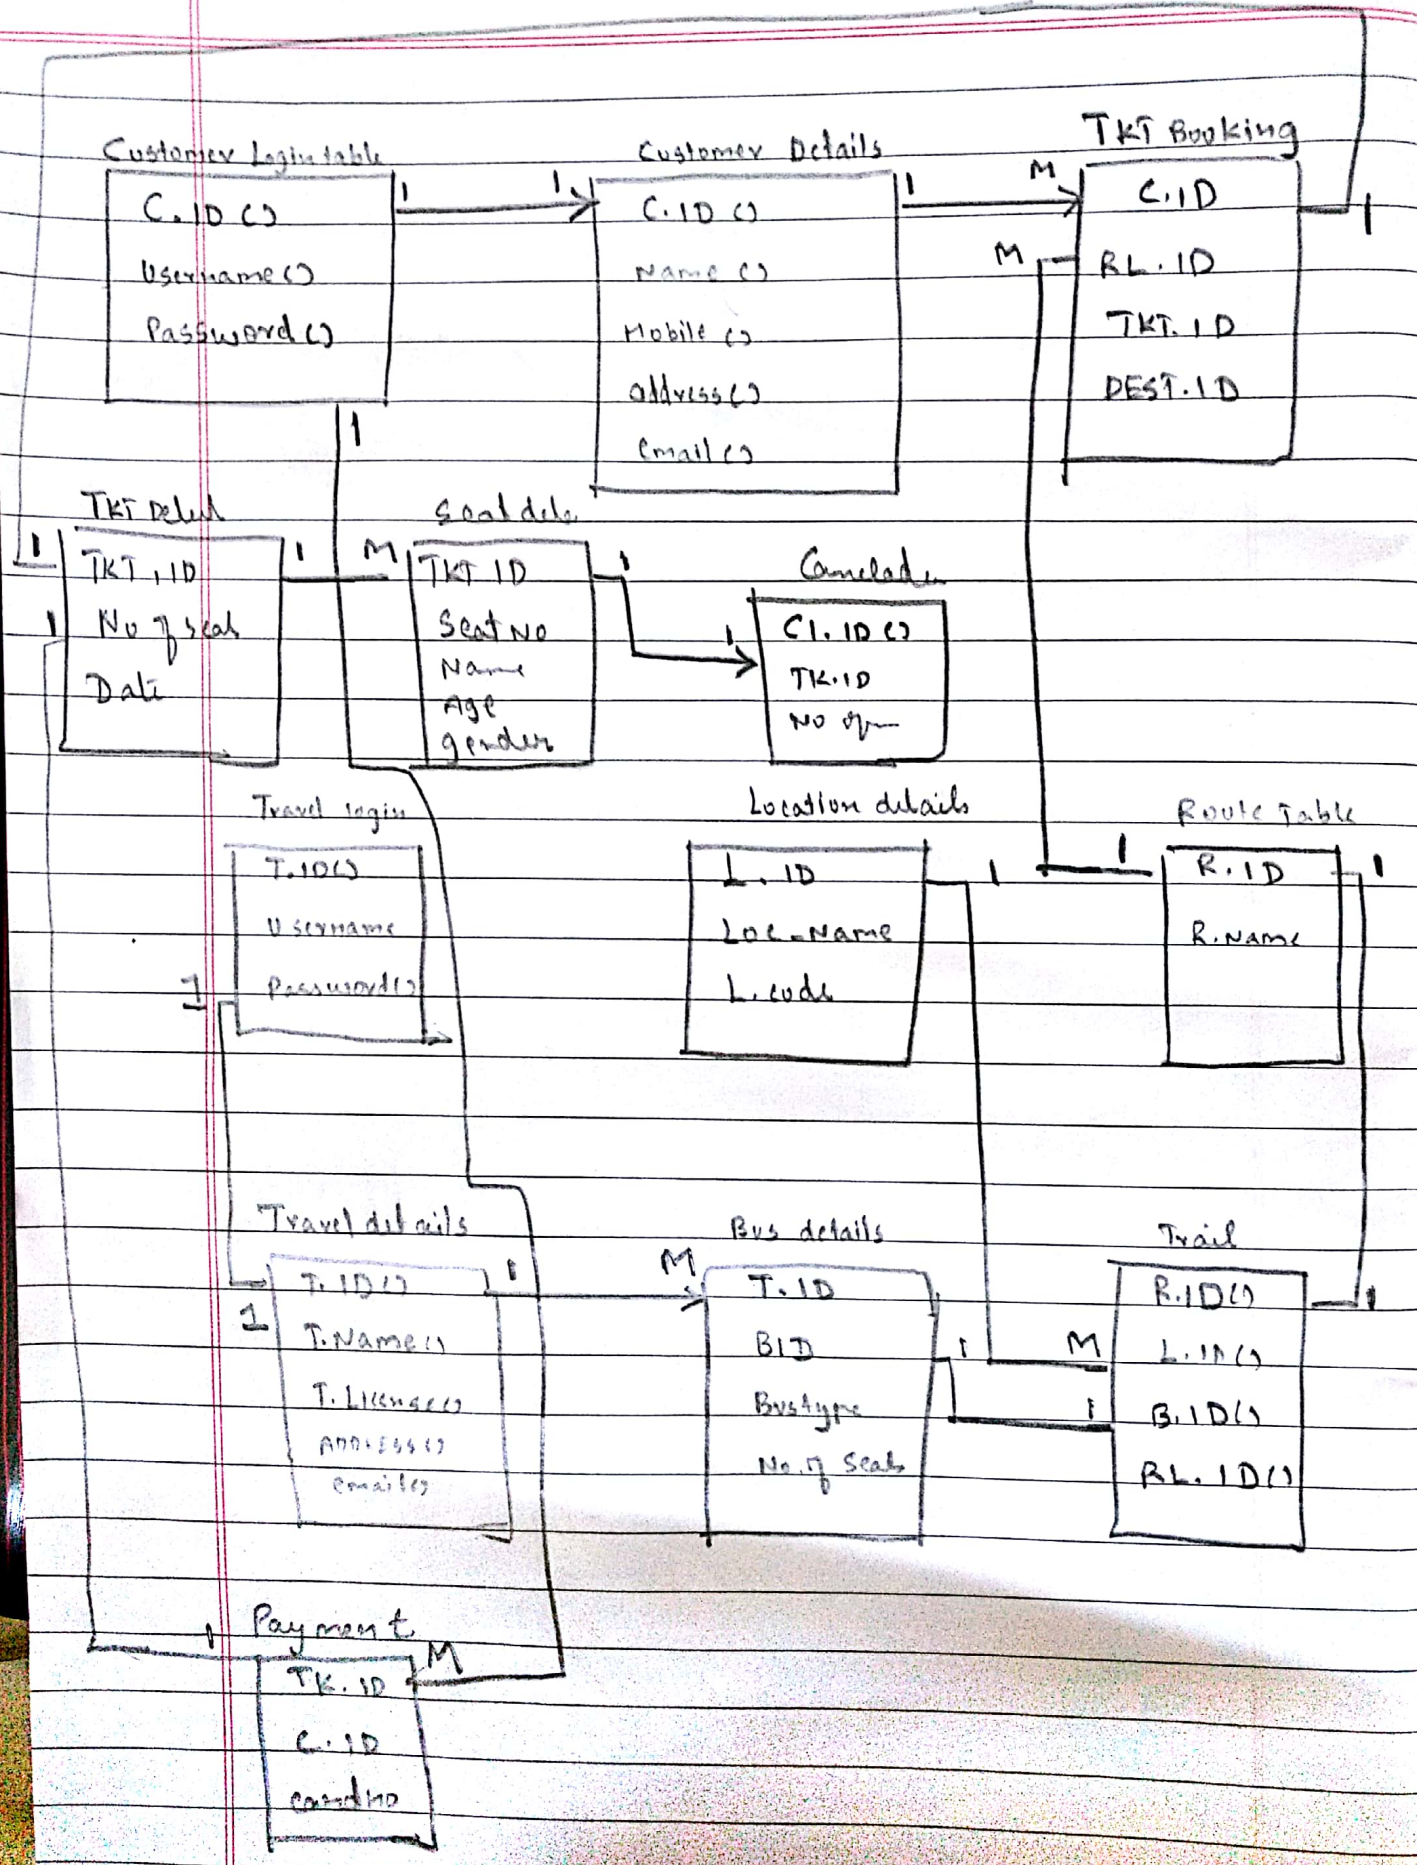 Customer Login table
1
1
C.ID()
Username()
Password()
1
Customer Details
1
C.ID()
Name()
Mobile()
address()
email()
TKT Booking
M
M
C.ID
1
RL.ID
TKT.ID
DEST.ID
TKT
1
1
1
TKT.ID
No of seats
Date
M
TKT ID
Seat No
Name
Age
gender
1
1
C1.ID()
TK.ID
No of
Travel login
T.ID()
Username
Password()
1
Location details
L.ID
Loc-Name
L.code
1
Route Table
1
R.ID
1
R.Name
Travel details
1
1
T.ID()
T.Name()
T.License()
ADDRESS()
email()
Bus details
M
T.ID
BID
Bustype
No.of Seats
1
Trail
R.ID()
1
M
L.ID()
1
B.ID()
RL.ID()
Payment
1
M
TK.ID
C.ID
cardno